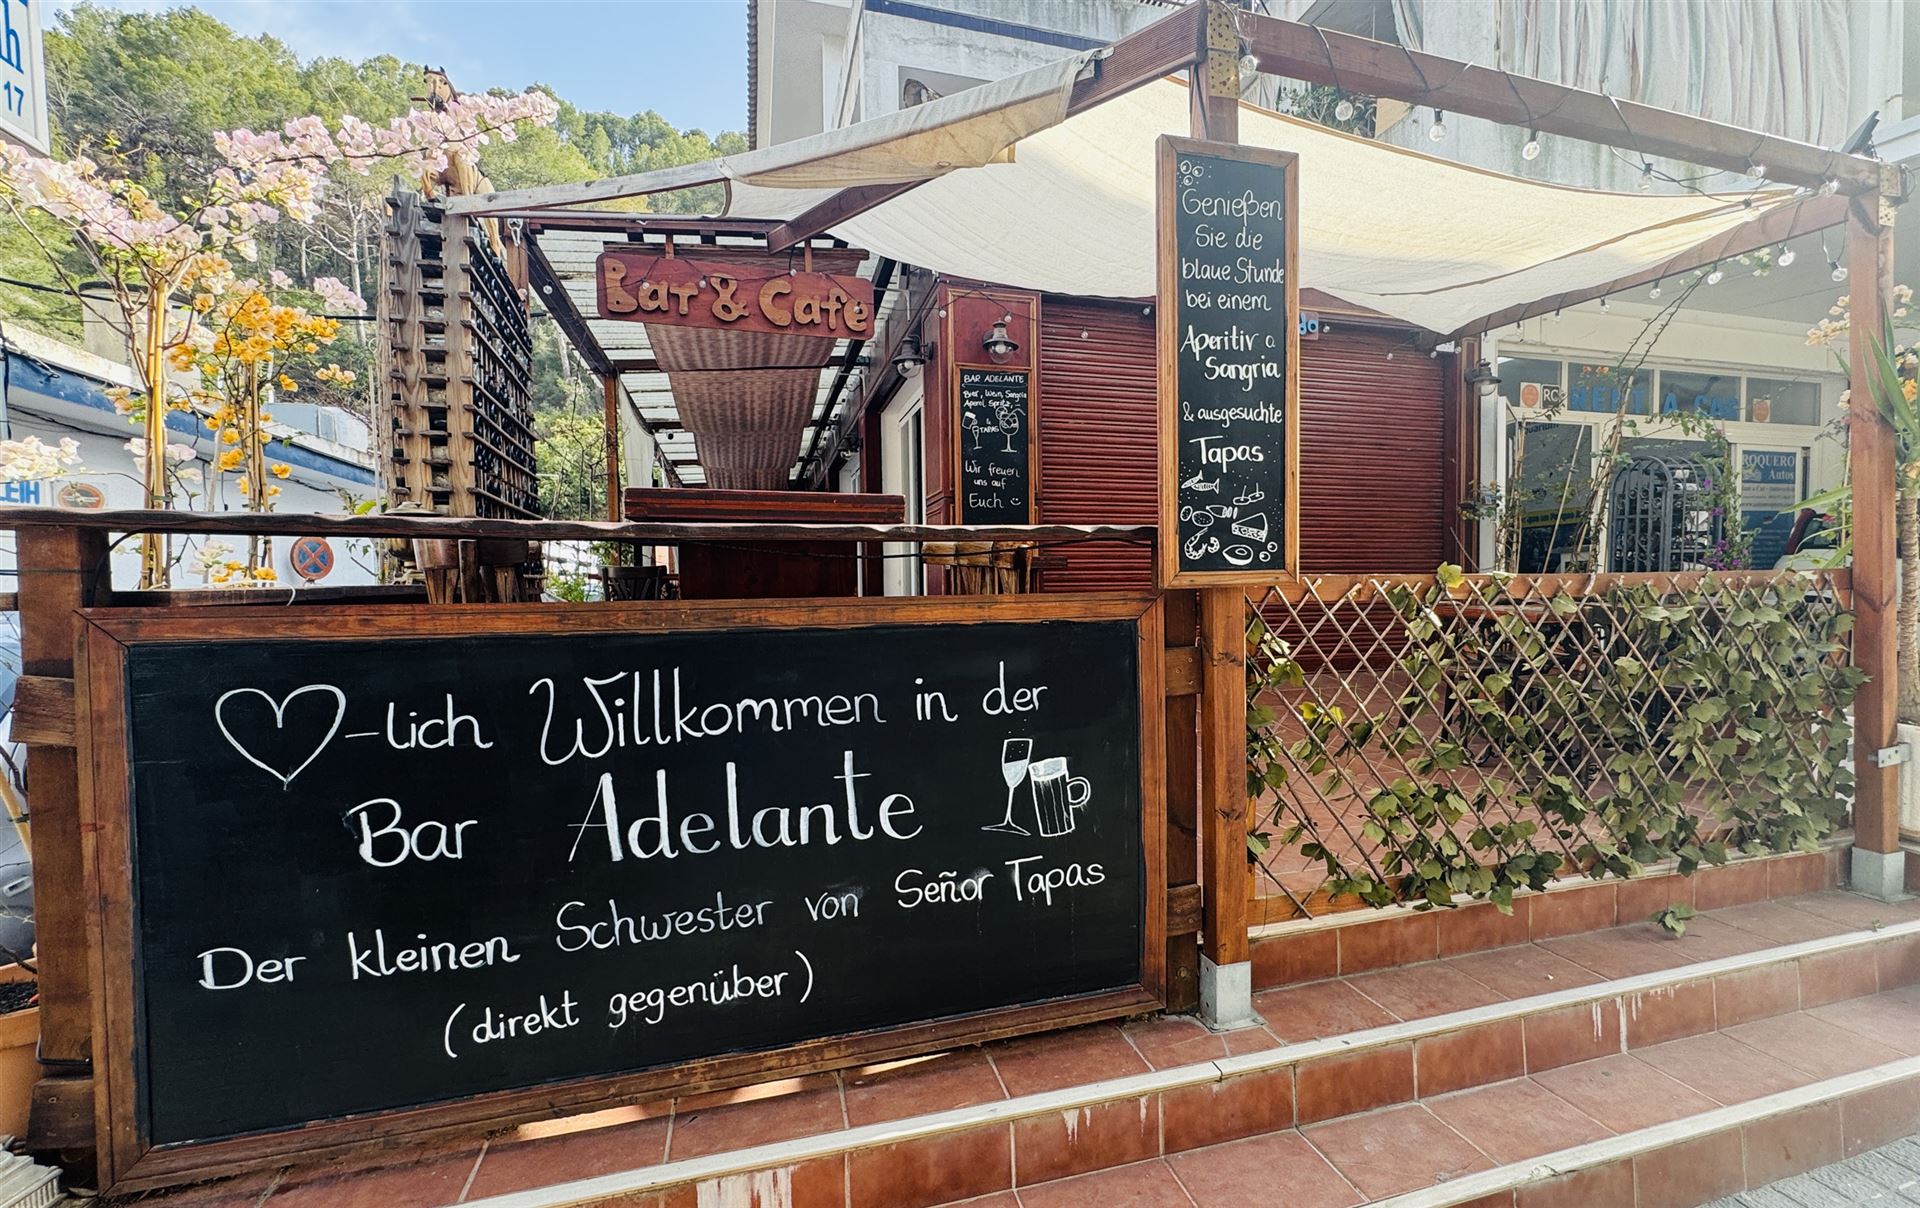 h
17
Bar & Cafe
Genießen
Sie die
blaue Stunde
bei einem
Aperitiv o
Sangria
& ausgesuchte
Tapas
BAR ADELANTE
Bier, Wein, Sangria
Aperol Spritz,
&
TAPAS
Wir freuen
uns auf
Euch
RC
RENT A CAR
ROQUERO
Autos
EIH
-lich Willkommen in der
Bar Adelante
Der kleinen Schwester von Señor Tapas
(direkt gegenüber)